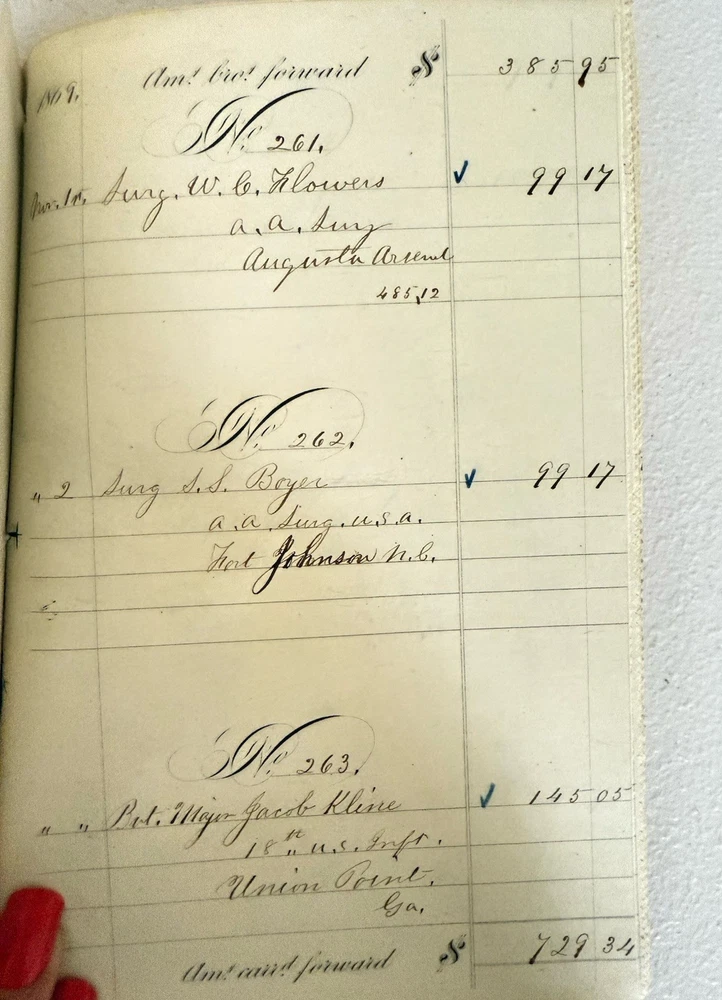 1869. Amt. brot. forward $ 385 95
No. 261.
Nov. 1st. Surg. W. C. Flowers ✓ 99 17
a. a. Surg
Augusta Arsenal
485,12
No. 262.
" 2 Surg S. S. Boyer ✓ 99 17
a. a. Surg. U.S.A.
Fort Johnson N.C.
No. 263.
" " Bvt. Major Jacob Kline ✓ 145 05
18th U.S. Inft.
Union Point.
Ga.
Amt. carrd. forward $ 729 34